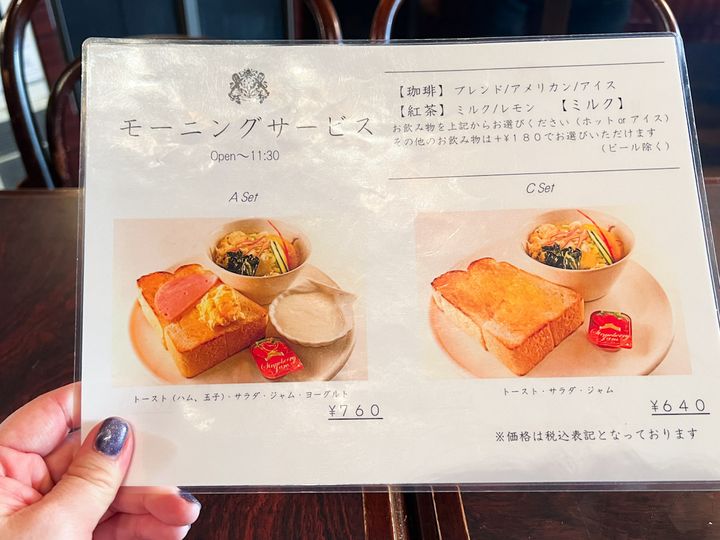 モーニングサービス
Open～11:30
【珈琲】 ブレンド/アメリカン/アイス
【紅茶】 ミルク/レモン 【ミルク】
お飲み物を上記からお選びください (ホット or アイス)
その他のお飲み物は＋¥180でお選びいただけます
(ビール除く)
A Set
Strawberry Jam
トースト (ハム、玉子)・サラダ・ジャム・ヨーグルト
¥760
C Set
Strawberry Jam
トースト・サラダ・ジャム
¥640
※価格は税込表記となっております